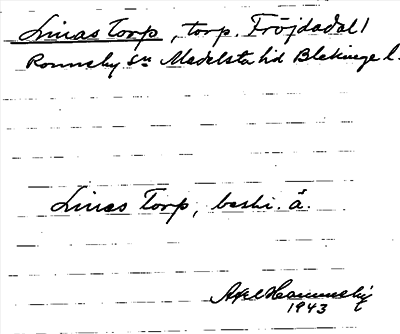 Linas Torp, torp. Fröjdadal 1
Ronneby sn Medelsta hd Blekinge l.
Linas Torp, beskr. å.
Axel
1943